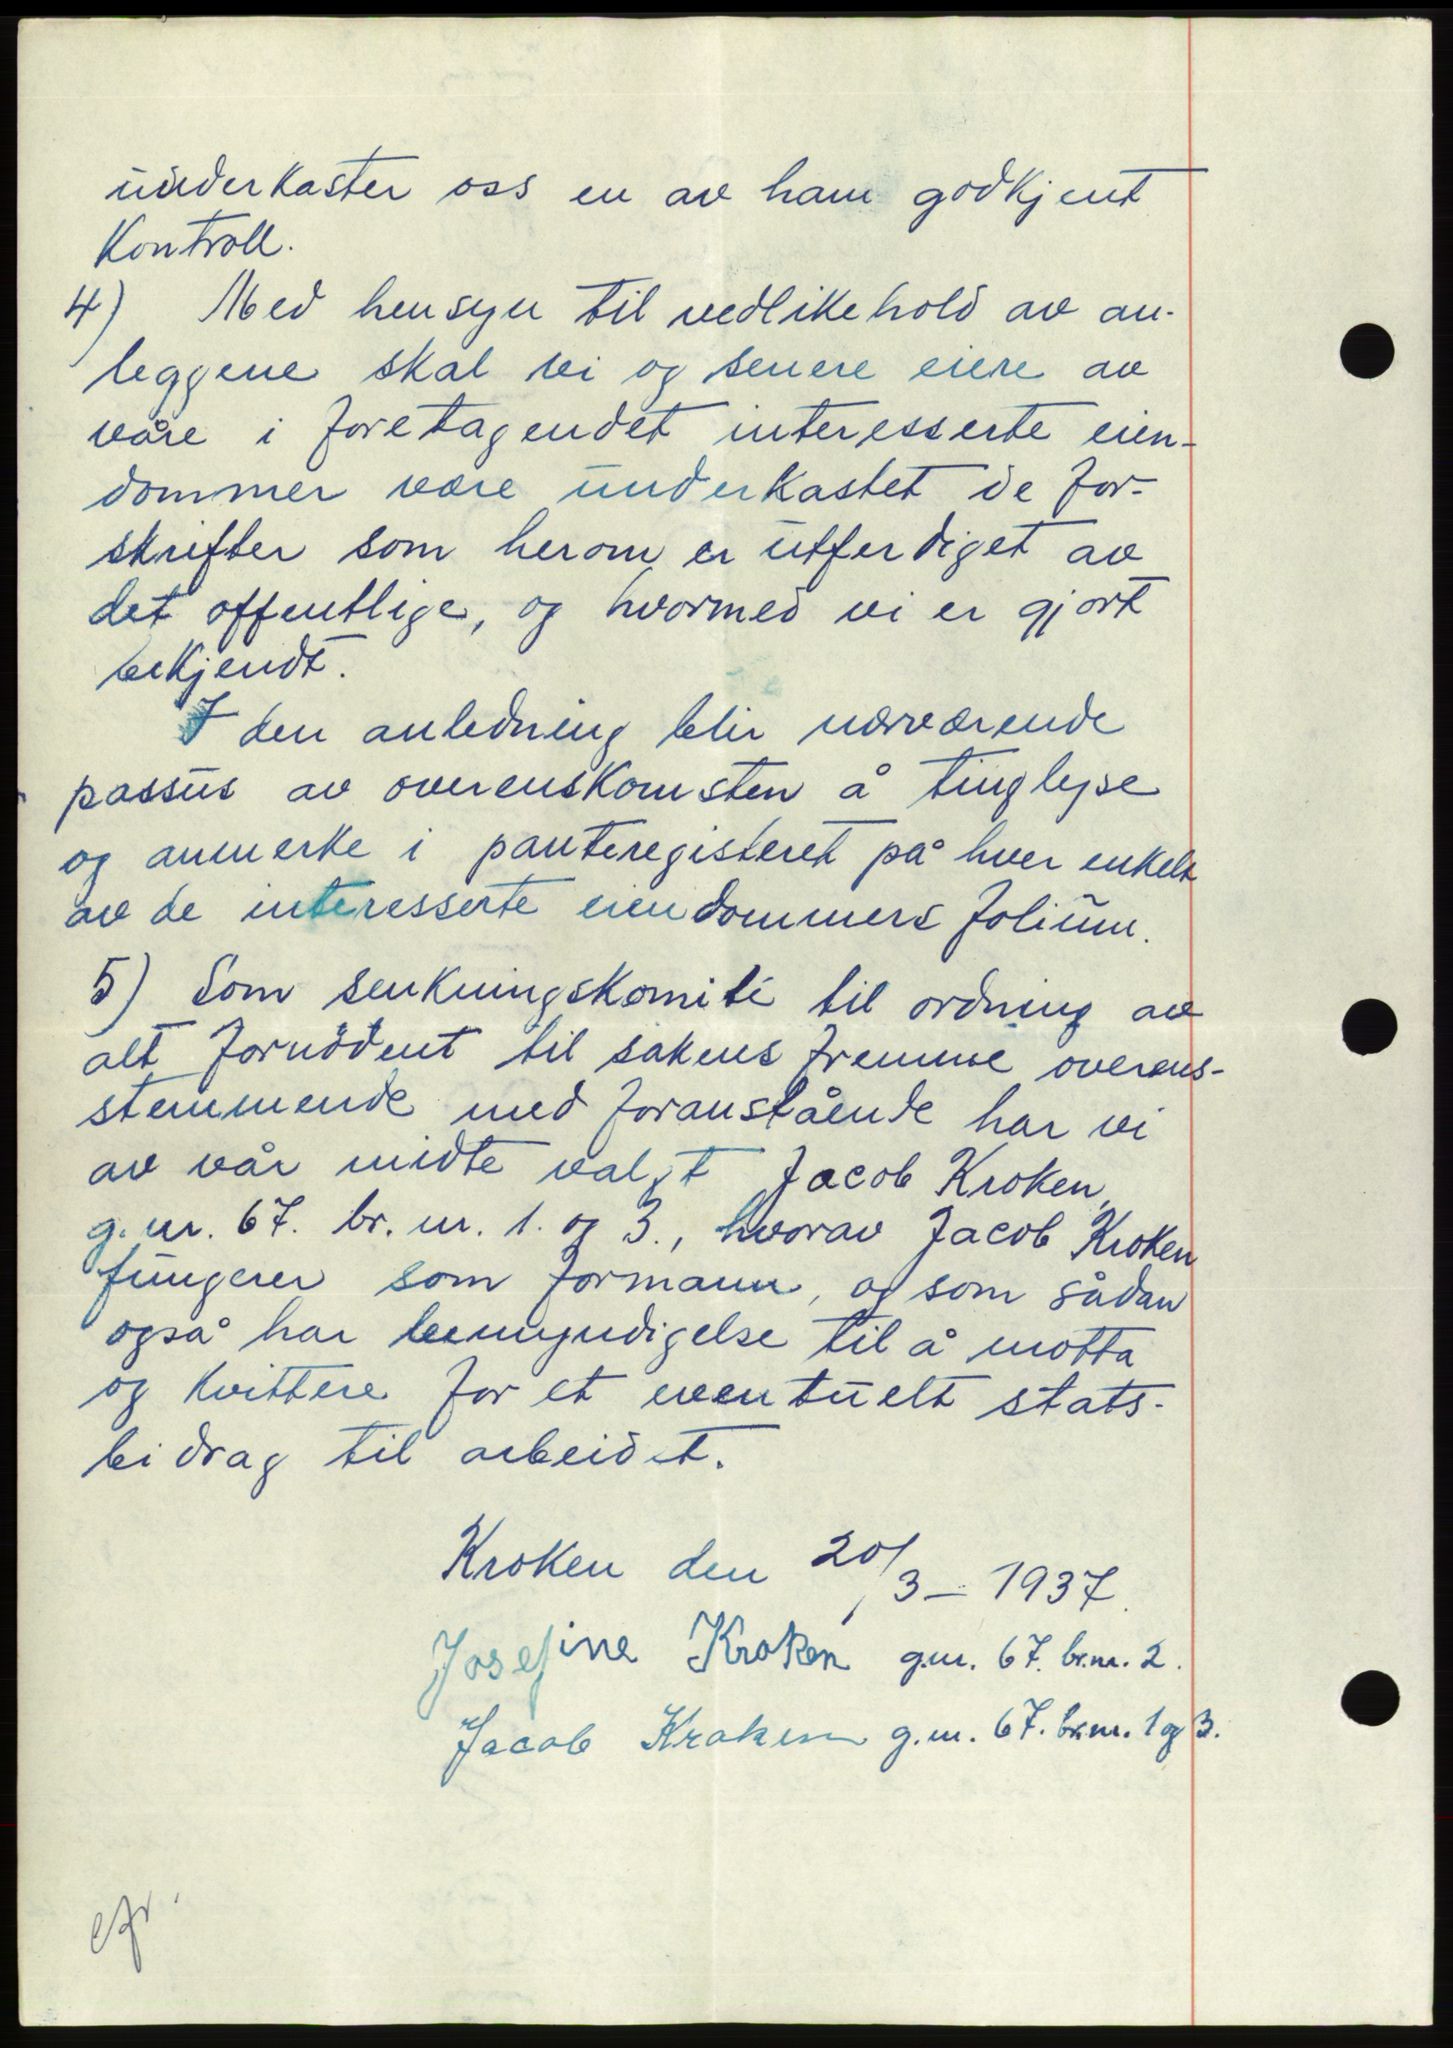 underkaster oss en av ham godkjent
Kontroll.
4) Med hensyn til vedlikehold av an-
leggene skal vi og senere eiere av
våre i foretagendet interesserte eien-
dommer være underkastet de for-
skrifter som herom er utferdiget av
det offentlige, og hvormed vi er gjort
bekjendt.
I den anledning blir nærværende
passus av overenskomsten å tinglyse
og anmerke i panteregisteret på hver enkelt
av de interesserte eiendommers folium.
5) Som senkningskomité til ordning av
alt fornødent til sakens fremme overens-
stemmende med foranstående har vi
av vår midte valgt Jacob Kroken,
g.nr. 67. br.nr. 1. og 3., hvorav Jacob Kroken
fungerer som formann, og som sådan
også har bemyndigelse til å motta
og kvittere for et eventuelt stats-
bidrag til arbeidet.
Kroken den 20/3 – 1937.
Josefine Kroken g.nr. 67. br.nr. 2.
Jacob Kroken g.nr. 67. br.nr. 1 og 3.